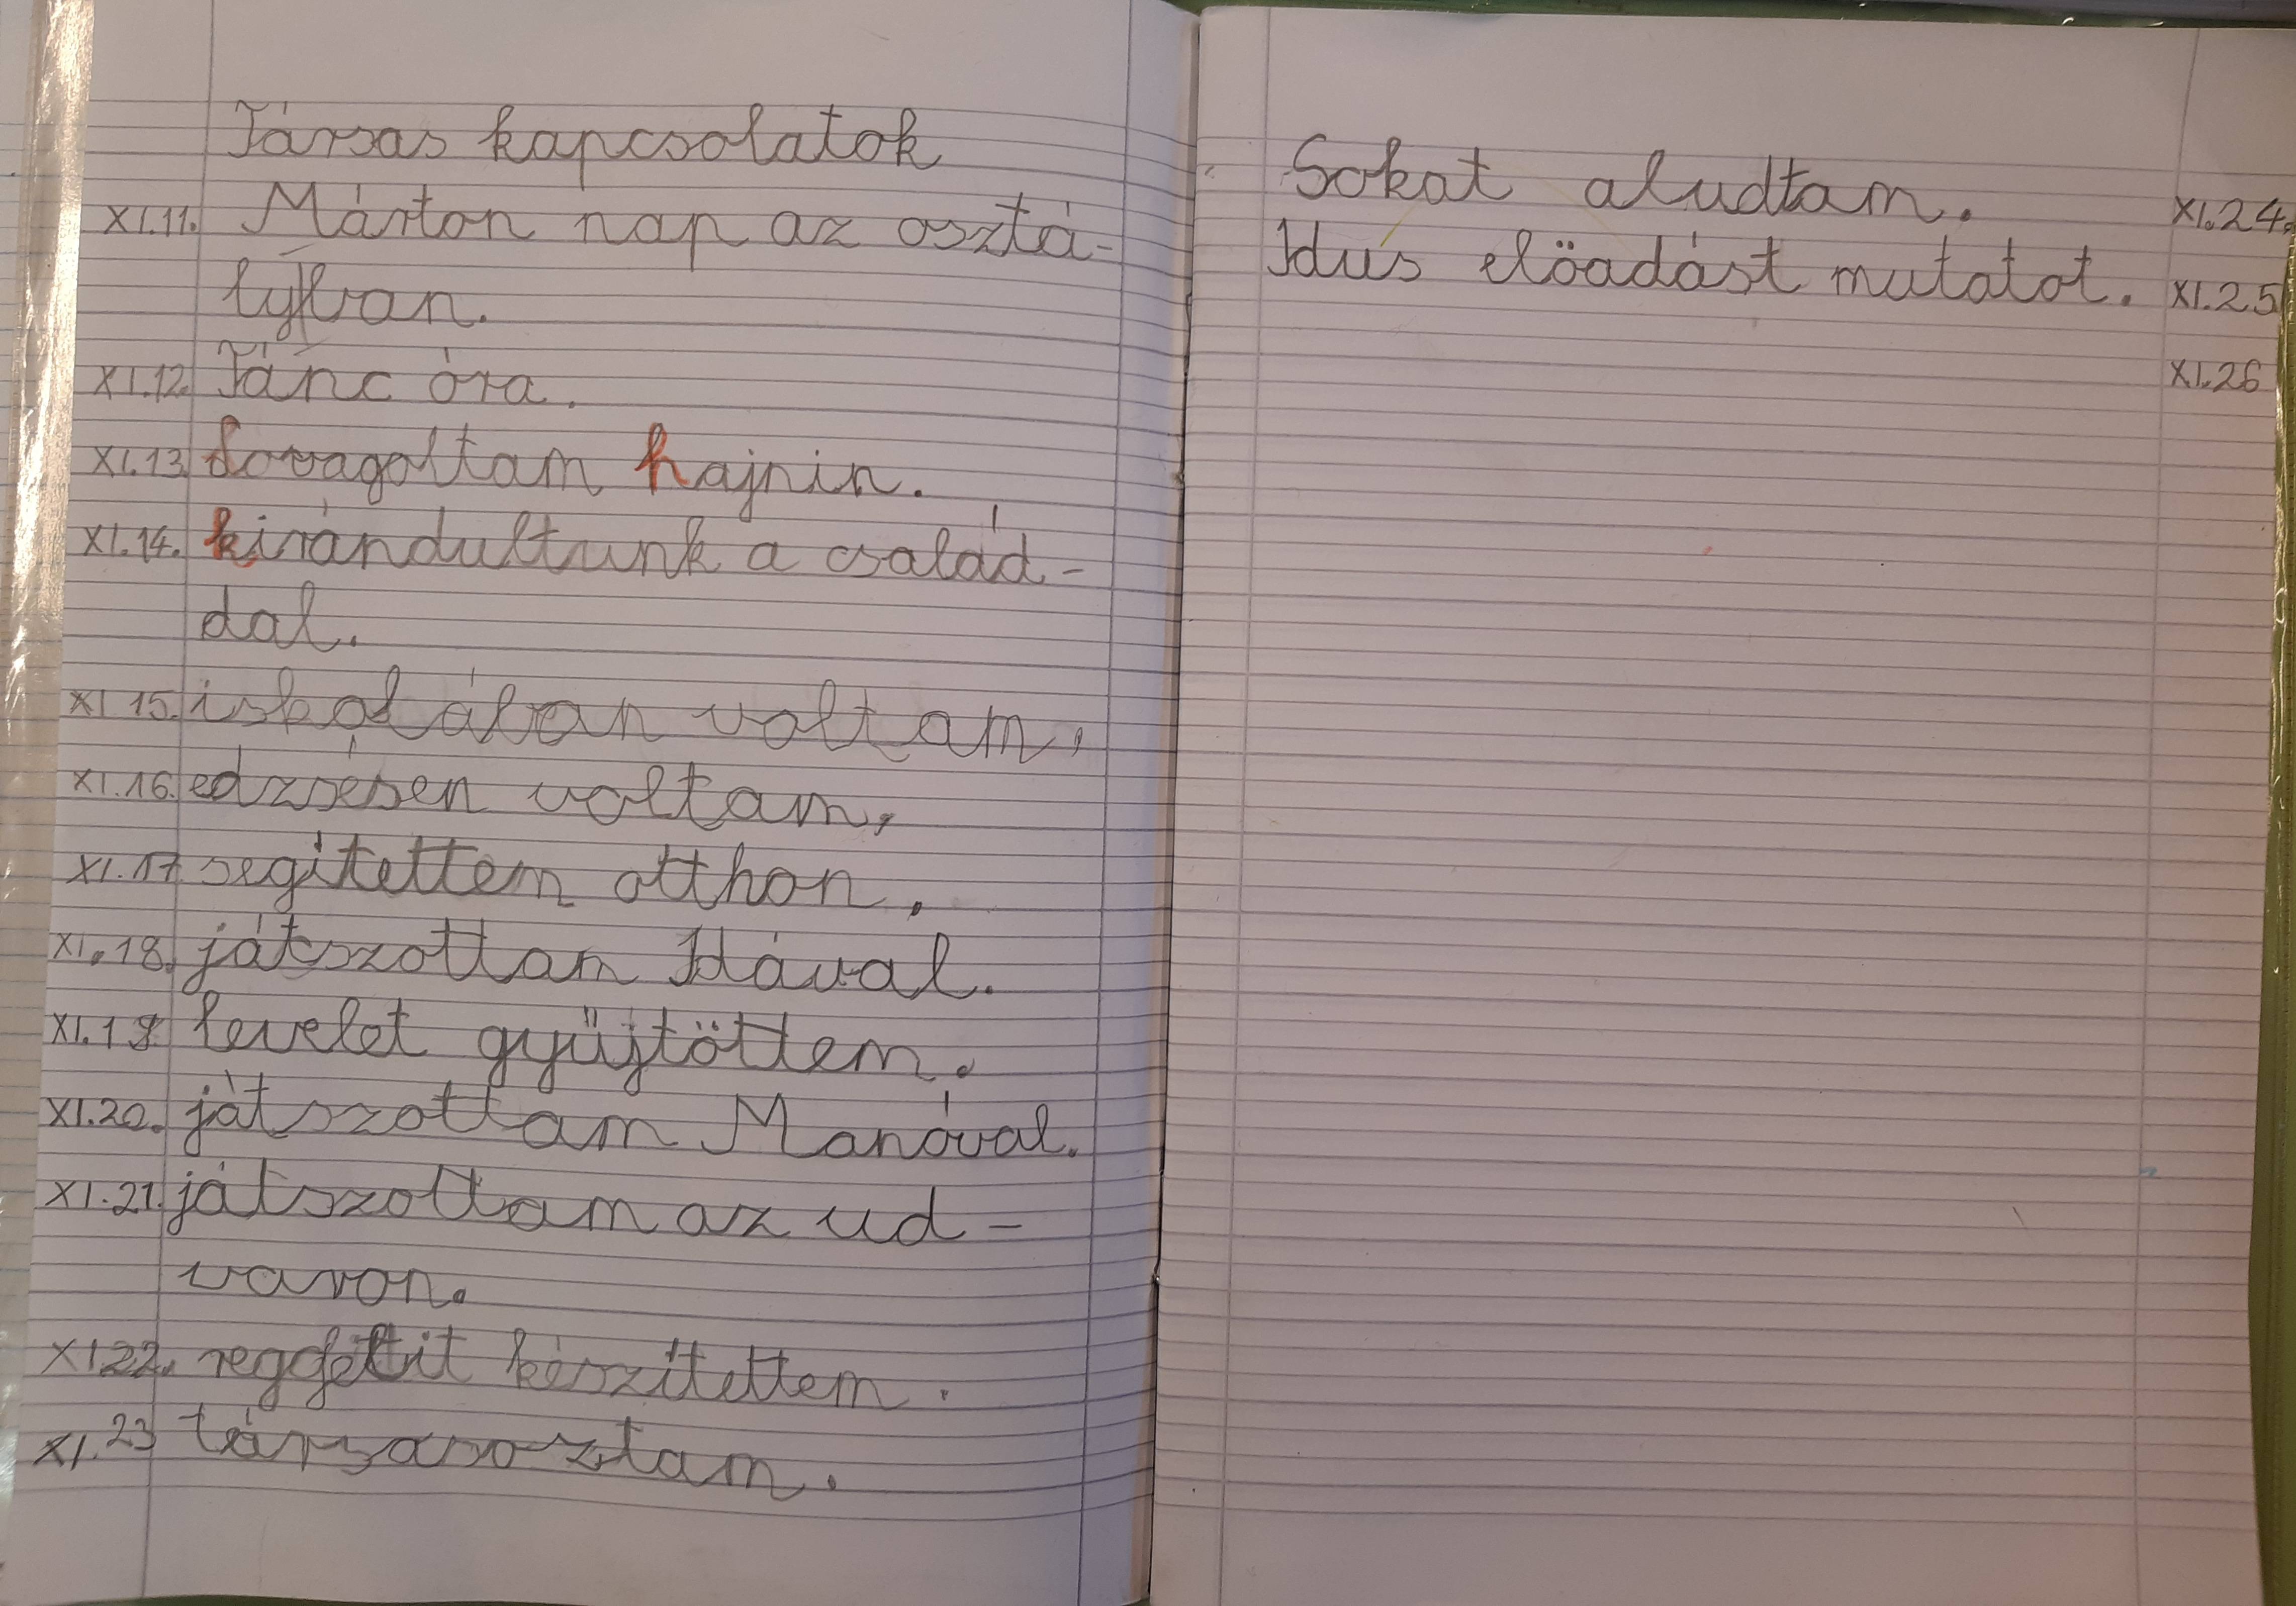 Társas kapcsolatok
XI.11. Márton nap az osztá-
lyban.
XI.12. Tánc óra.
XI.13. Lovagoltam hajnin.
XI.14. kirándultunk a család-
dal.
XI.15. iskolában voltam,
XI.16. edzsésen voltam,
XI.17. segítettem otthon,
XI.18. játszottam Idával.
XI.19. levelet gyűjtöttem.
XI.20. játszottam Manóval.
XI.21. játszottam az ud-
varon.
XI.22. reggelit készítettem.
XI.23 társasoztam.
Sokat aludtam. XI.24.
Idus elöadást mutatot. XI.25
XI.26